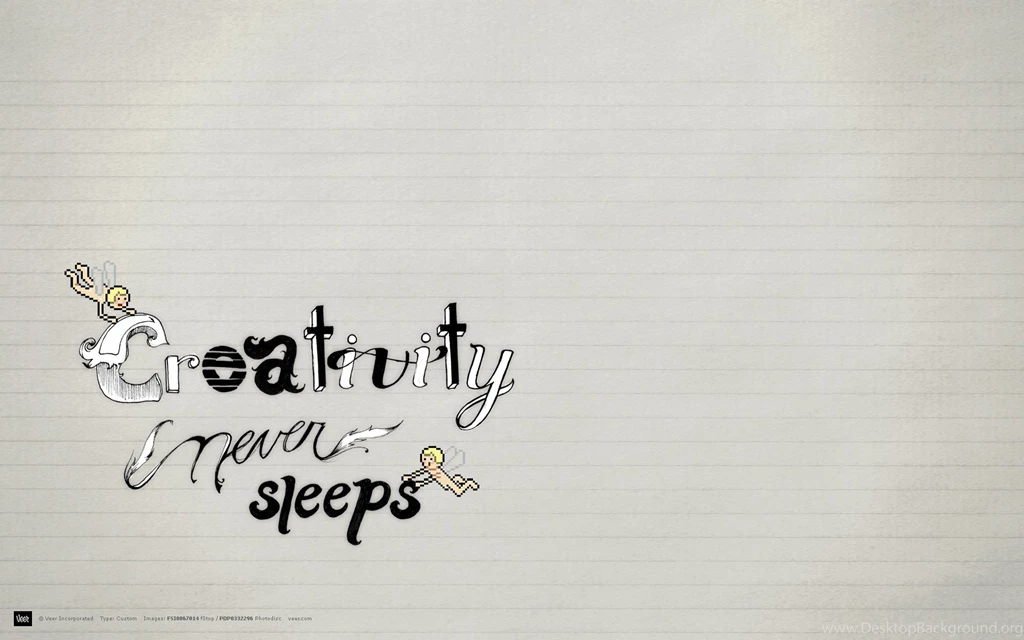 Creativity
never
sleeps
Veer © Veer Incorporated Type: Custom Images: FSI0067014 fStop / PDP0332296 Photodisc veer.com
www.DesktopBackground.org